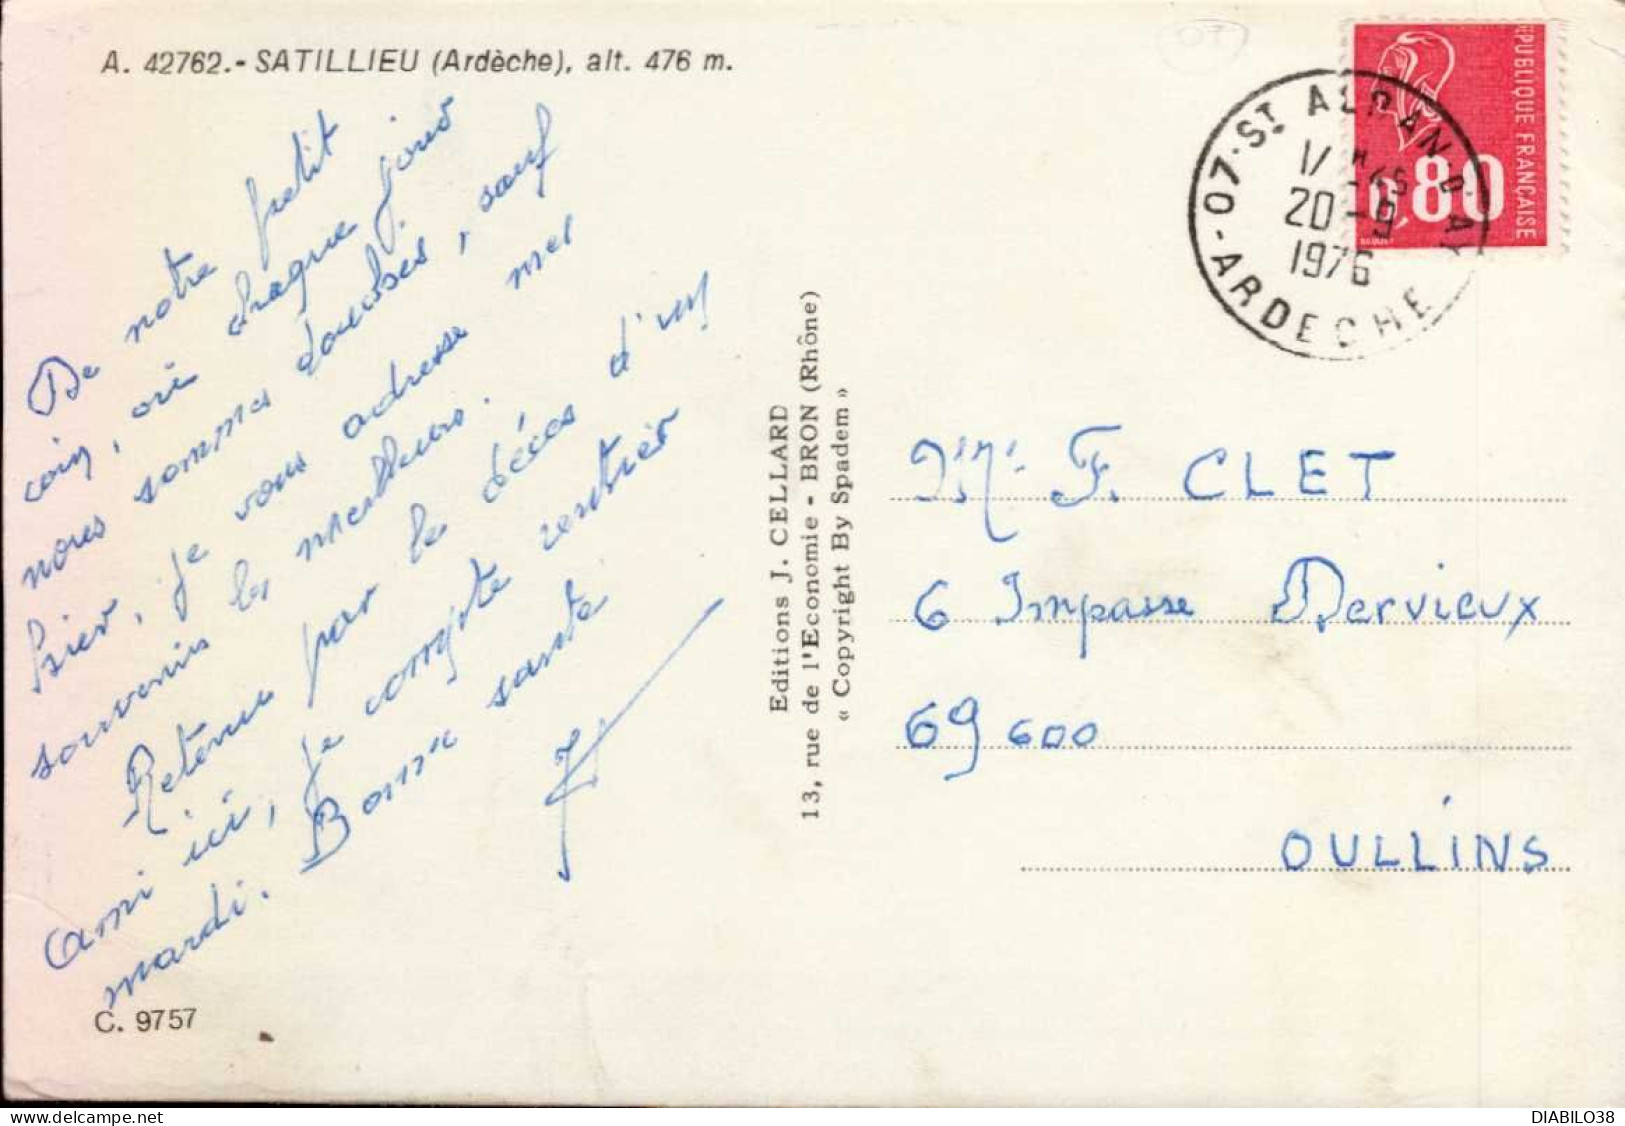 A. 42762.- SATILLIEU (Ardèche), alt. 476 m.
De notre petit
coin, où chaque jour
nous sommes douchés, sauf
hier, je vous adresse mes
souvenirs les meilleurs.
Retenue par le décès d'un
ami ici, je compte rentrer
mardi. Bonne santé
C. 9757
Editions J. CELLARD
13, rue de l'Economie - BRON (Rhône)
« Copyright By Spadem »
RÉPUBLIQUE FRANÇAISE
0,80
07 - ST ALBAN D'AY
20 - 9
1976
ARDECHE
Mr F. CLET
6 Impasse Dervieux
69600
OULLINS
DIABILO38